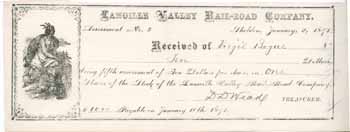 LAMOILLE VALLEY RAIL-ROAD COMPANY.
Assessment No. 5 Sheldon, January, 1872.
Received of
Ten Dollars
being fifth assessment of Ten Dollars for share in One
Share of the Stock of the Lamoille Valley Rail Road Company.
TREASURER.
Payable on January 10th 1872.